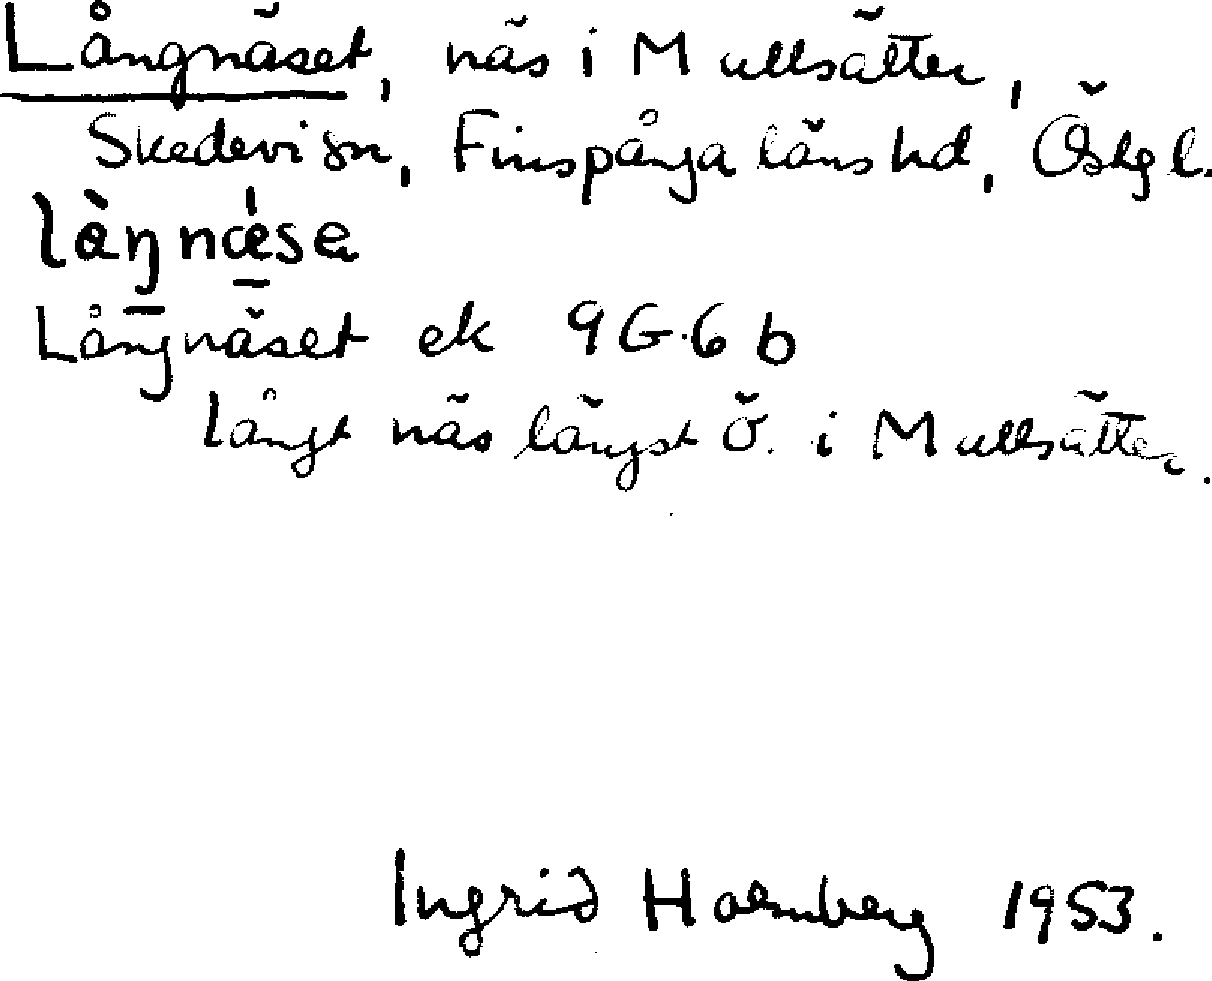 Långnäset, näs i Mullsätter,
Skedevi sn, Finspånga läns hd, Östg l.
làŋnæ´sa
Långnäset ek 9G.6b
Långt näs längst ö. i Mullsätter.
Ingrid Holmberg 1953.